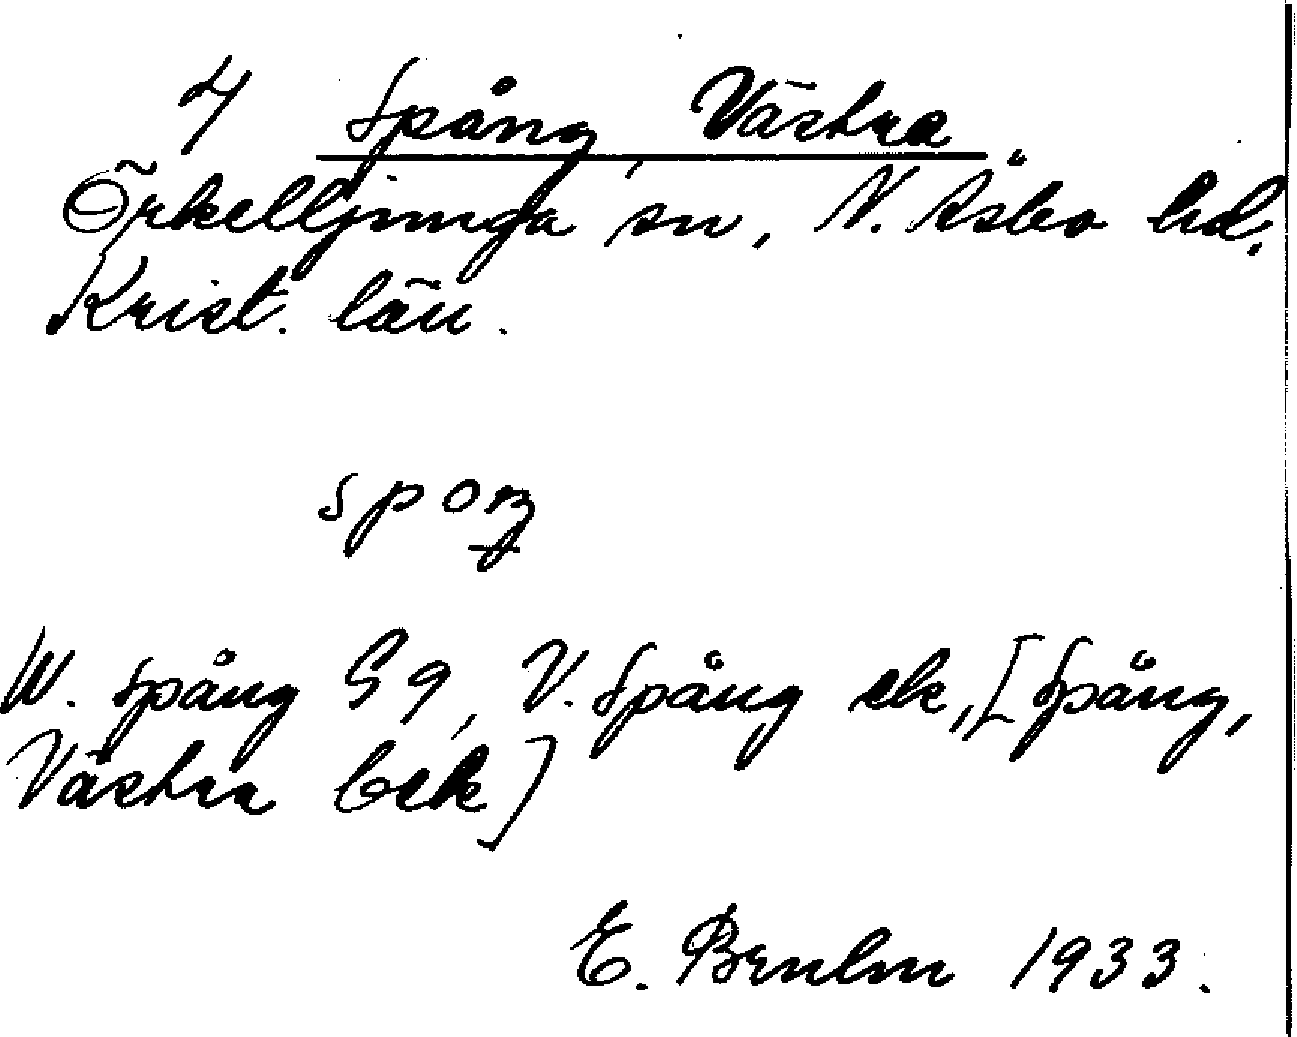 4 Spång, Västra
Örkelljunga sn, N. Åsbo hd,
Krist. län.
spoŋ
W. Spång G9, V. Spång ek, [Spång,
Västra bek]
E. Benlm 1933.